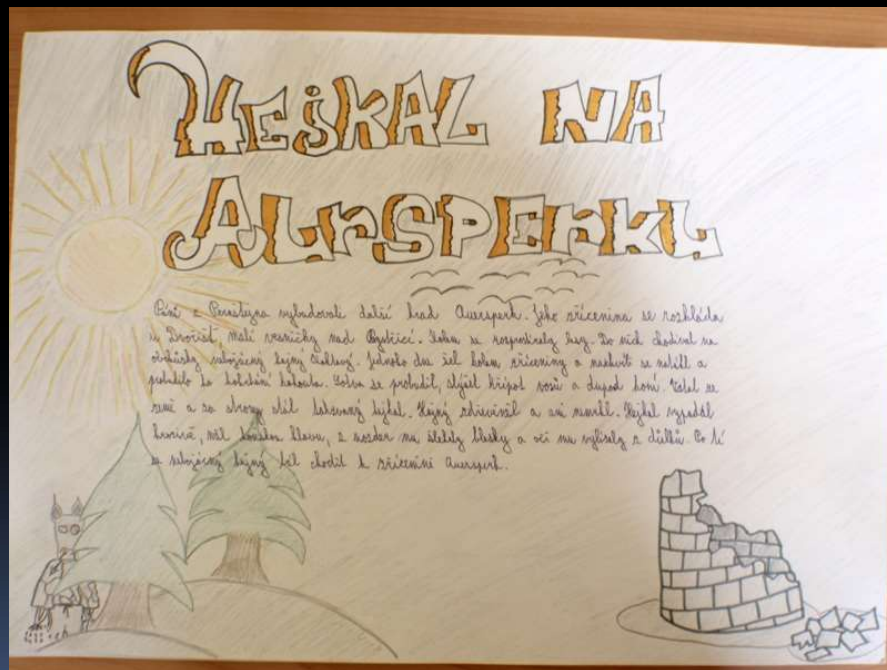 HEJKAL NA
AURSPERKU
Páni z Pernštejna vybudovali další hrad Auersperk. Jeho zřícenina se rozkládá
u Dvořišť, malé vesničky nad Bystřicí. Kolem se rozprostíraly lesy. Do nich chodíval na
obchůzky nebojácný hajný. Jednoho dne šel kolem zříceniny a
probudilo ho kokrhání kohouta. Sotva se probudil, slyšel křípot vozů a dupod koní. Vstal ze
země a za stromy stál hejkal. Hajný zdřevěněl a ani nemrkl. Hejkal vypadal
hrozivě, měl koňskou hlavu, z nozder mu šlehaly blesky a oči mu vylisaly z důlků. Od té
se nebojácný hajný bál chodit k zřícenině Auersperk.